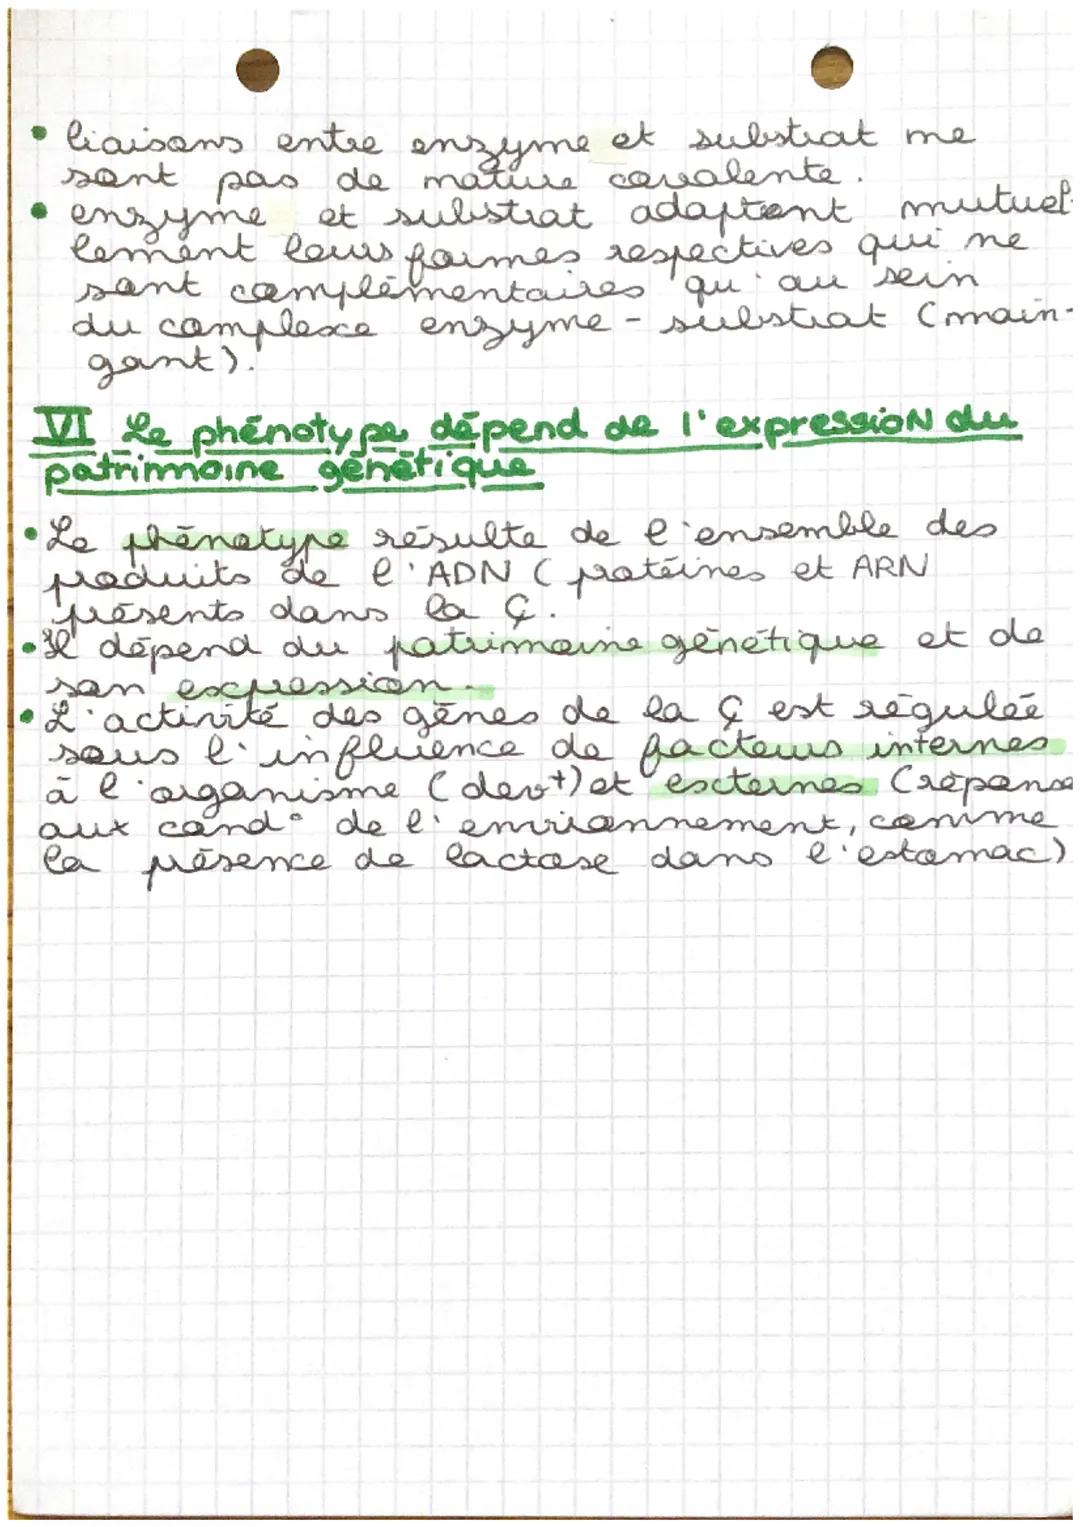 • liaisons entre enzyme et substrat ne
sont pas de nature covalente.
• enzyme et substrat adaptent mutuel-
lement leurs formes respectives qui ne
sont complémentaires qu'au sein
du complexe enzyme - substrat (main-
gant).
VI Le phénotype dépend de l'expression du
patrimoine génétique
• Le phénotype résulte de l'ensemble des
produits de l'ADN (protéines et ARN
présents dans la Ç.
• Il dépend du patrimoine génétique et de
son expression.
• L'activité des gènes de la Ç est régulée
sous l'influence de facteurs internes
à l'organisme (devt) et externes (réponse
aux cond° de l'environnement, comme
la présence de lactose dans l'estomac)